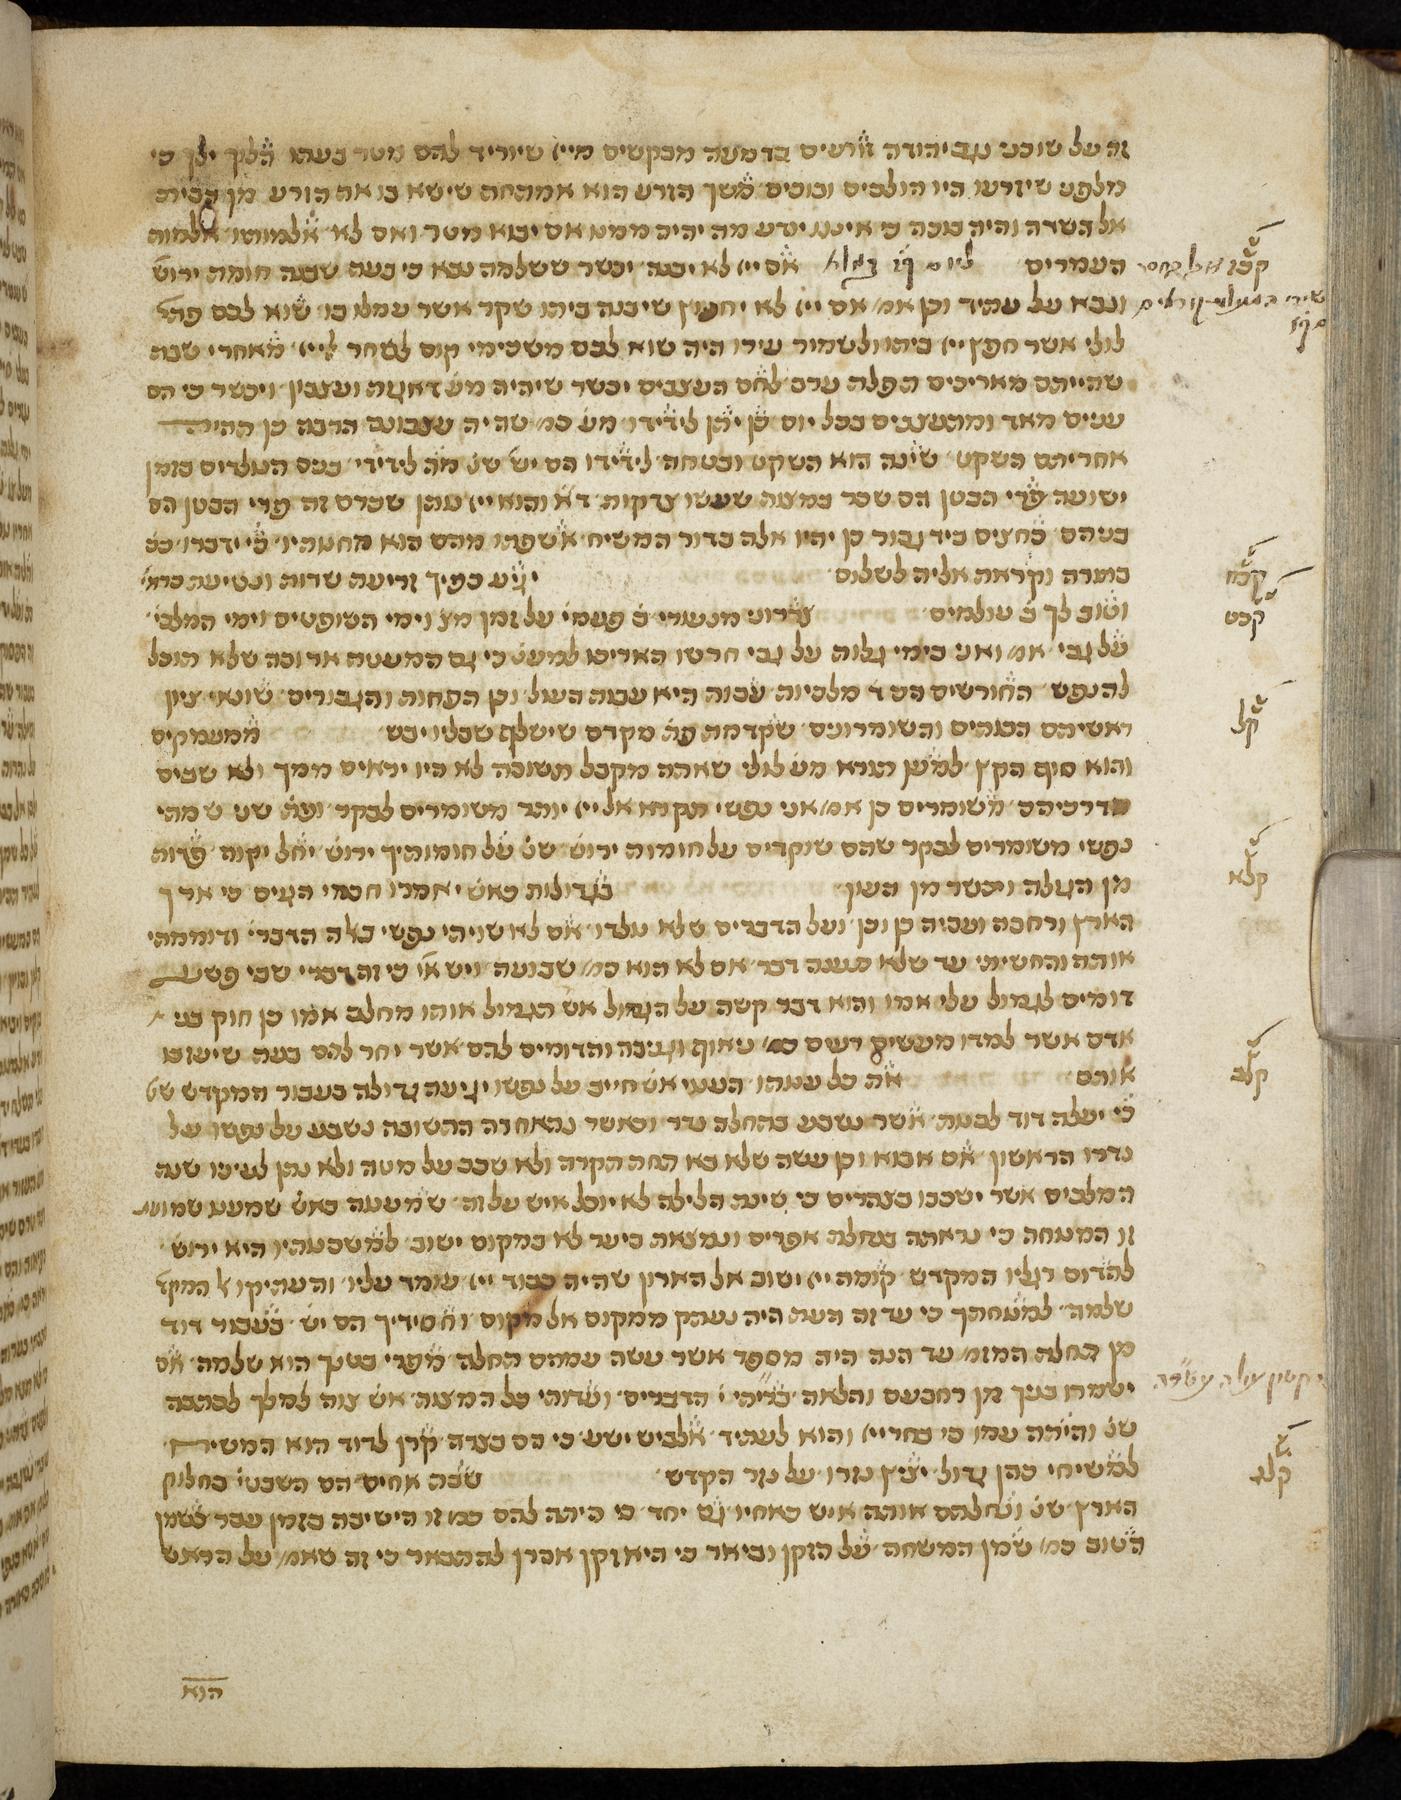 זה על שוכני נגב יהודה זורעים בדמעה מבקשים מיי׳ שיוריד להם מטר בעתו הלוך ילך כי
מלפני שיזרעו היו הולכים ובוכים משך הזרע הוא אמתחת שישא בו את הזרע מן הבית
אל השדה והיה בוכה כי איננו יודע מה יהיה ממנו אם יבוא מטר ואם לא אלמותו אלמות
העמרים אם יי׳ לא יבנה יתכן ששלמה נבא כי בעת שבנה חומת ירוש׳
ונבא על עתיד וכן אמ׳ אם יי׳ לא יחפוץ שיבנה ביתו שקר אשר עמלו בו שוא לכם פתר׳
לולי אשר חפץ יי׳ ביתו ולשמור עירו היה שוא לכם משכימי קום לשחר ליי׳ מאחרי שבת
שהייתם מאריכים תפלת ערב לחם העצבים יתכן שיהיה מע׳ דאגות ועצבון ויתכן כי הם
עניים מאד ומתעצבים בכל יום כן יתן לידידו מע׳ כמ׳ שהיה עצבונם הרבה כן תהיה
אחריתם השקט שינה הוא השקט ובטחה לידידו הם יש׳ שנ׳ מה לידידי בנים הנולדים בזמן
ישועה פרי הבטן הם שכר במצות שעשו צדקות ד״א והוא יי׳ נותן שכרם זה פרי הבטן הם
בניהם כחצים ביד גבור כן יהיו אלה בדור המשיח אשפתו מהם הוא מחנותיו כי ידברו ככ׳
בתורה וקראת אליה לשלום יגיע כפיך זריעת שדות ונטיעת כרמי׳
וטוב לך ב׳ עולמים צררוני מנעורי ב׳ פעמי׳ על זמן מצ׳ וימי השופטים וימי המלכי׳
על גבי אמ׳ ואני בימי גלות על גבי חרשו האריכו למענ׳ כי גם המענית ארוכה שלא תוכל
להנפש החורשים הם ד׳ מלכיות עבות היא עבות העול וכן הפחות והגבורים שונאי ציון
ראשיהם הכותים והשומרונים שקדמת פת׳ מקדם שישלף שבליו יבש ממעמקים
והוא סוף הקץ למען תורא מע׳ לולי שאתה מקבל תשובה לא היו יראים ממך ולא שבים
מדרכיהם משומרים כן אמ׳ אני נפשי תקוה אל יי׳ יותר משומרים לבקר ופת׳ שני שמתי
נפשי משומרים לבקר שהם שוקדים על חומות ירוש׳ שנ׳ על חומותיך ירוש׳ יחל יקוה פדות
מן הגלות ויתכן מן העון בגדולות כאש׳ יאמרו חכמי הגוים כי ארך
הארץ ורחבה ועביה כן וכן ועל הדברים שלא נולדו אם לא שויתי נפשי באלה הדברי׳ ודוממתי
אותה והחשיתי עד שלא תענה דבר אם לא הוא כמ׳ שבועה ויש או׳ כי זה דברי שבי פשע
דומים לגמול עלי אמו והוא דבר קשה על הגמול אש׳ תגמול אותו מחלב אמו כן חוק בני
אדם אשר למדו מעשים רעים כמ׳ ניאוף וגניבה והדומים להם אשר יחר להם בעת שיעזבו
אותם את כל ענותו העני אש׳ חייב על נפשו יגיעה גדולה בעבור המקדש שט׳
כי יעלה דוד לבנות אשר נשבע בתחלה נדר וכאשר נתאחרה התשובה נשבע על נפשו על
נדרו הראשון אם אבוא וכן עשה שלא בא תחת הקרה ולא שכב על מטה ולא נתן לעיניו שנה
המלכים אשר ישכבו בצהרים כי שינת הלילה לא יוכל איש על זה שמענוה כאש׳ שמענו שמועת
זו המנוחה כי נראתה בנחלת אפרים ונמצאת ביער לא במקום ישוב למשכנותיו היא ירוש׳
להדום רגליו המקדש קומה יי׳ ישוב אל הארון שהיה כבוד יי׳ עומד עליו והעתיקו אל המקד׳
שלמה למנוחתך כי עד זה העת היה נעתק ממקום אל מקום וחסידיך הם יש׳ בעבור דוד
מן תחלת המזמ׳ עד הנה היה מספר אשר עשה עמהם תחלה מפרי בטנך הוא שלמה אם
ישמרו בניך מן רחבעם והלאה בריתי י׳ הדברים ועדותי כל המצות אש׳ צוה למלך לכתבה
שנ׳ והיתה עמו כי בחר יי׳ והוא לעתיד אלביש ישע כי הם בצרה קרן לדוד הוא המשיח
למשיחי כהן גדול יציץ נזרו על נזר הקדש שבת אחים הם השבטי׳ בחלוק
הארץ שנ׳ ונחלתם אותה איש כאחיו גם יחד כי היתה להם כמו זו הישיבה בזמן עבר כשמן
הטוב כמ׳ שמן המשחה על הזקן וביאר כי היא זקן אהרן להתבאר כי זה שאמ׳ על הראש
הוא
קכז
קכח
קכט
קל
קלא
קלב
קלג